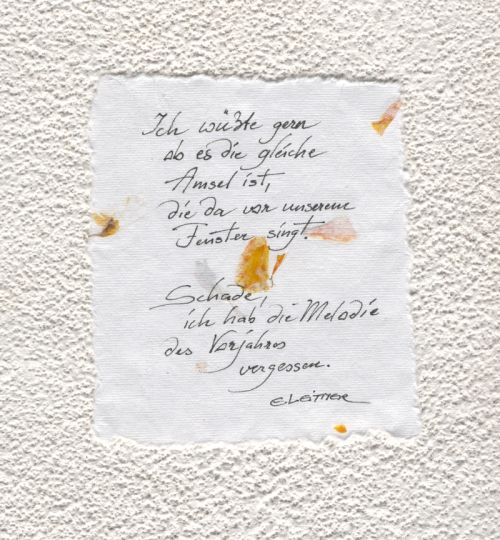 Ich wüßte gern
ob es die gleiche
Amsel ist,
die da vor unserem
Fenster singt.
Schade,
ich hab die Melodie
des Vorjahres
vergessen.
E Leitner